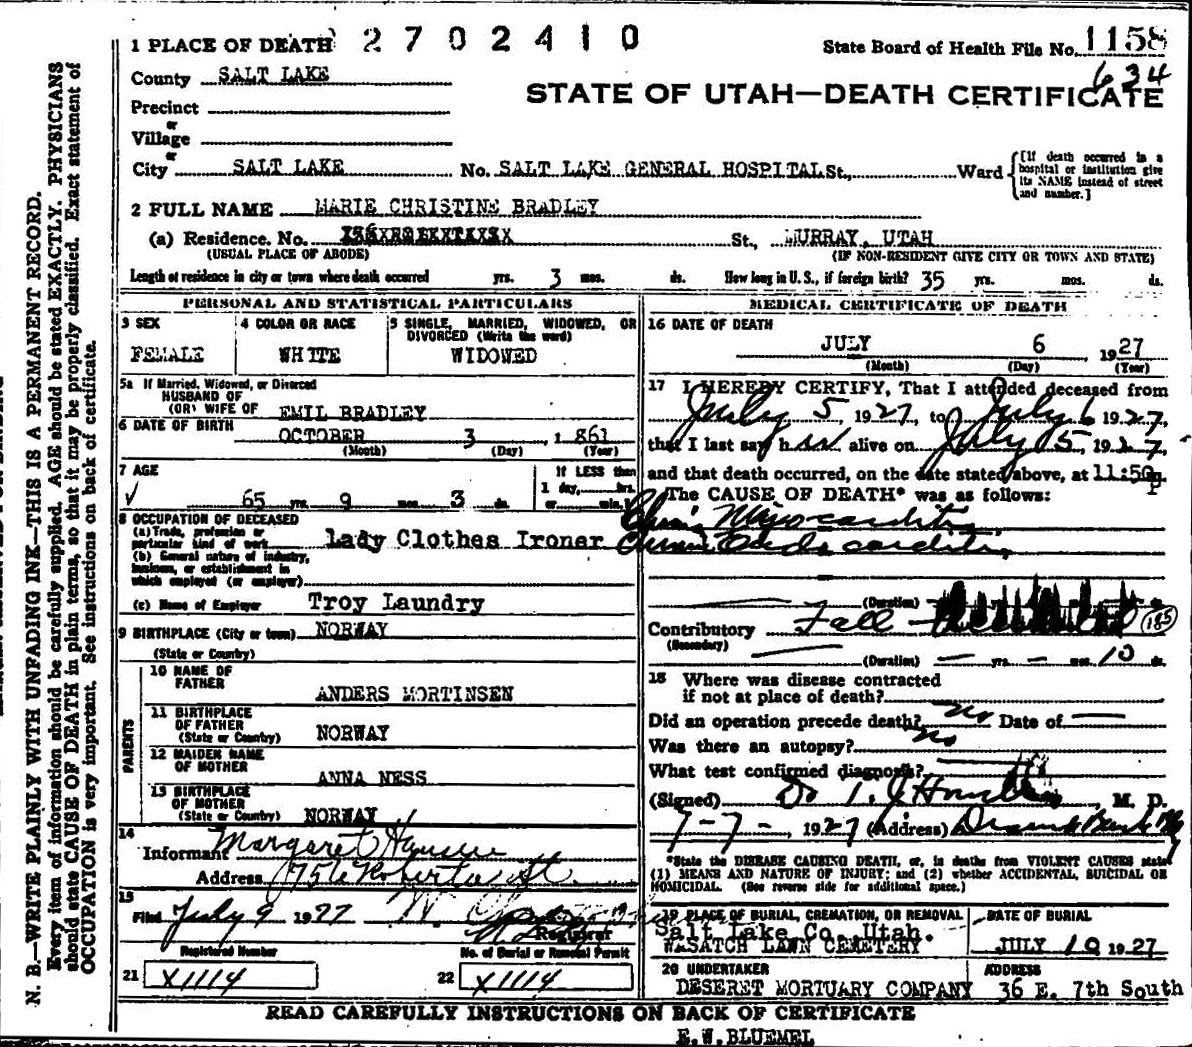 1 PLACE OF DEATH 2702410
State Board of Health File No. 1158
634
County SALT LAKE
STATE OF UTAH—DEATH CERTIFICATE
Precinct
or
Village
or
City SALT LAKE No. SALT LAKE GENERAL HOSPITAL St., Ward {[If death occurred in a hospital or institution give its NAME instead of street and number.]
2 FULL NAME MARIE CHRISTINE BRADLEY
(a) Residence. No. St., MURRAY, UTAH
(USUAL PLACE OF ABODE) (IF NON-RESIDENT GIVE CITY OR TOWN AND STATE)
Length of residence in city or town where death occurred yrs. 3 mos. ds. How long in U. S., if foreign birth? 35 yrs. mos. ds.
PERSONAL AND STATISTICAL PARTICULARS
3 SEX
FEMALE
4 COLOR OR RACE
WHITE
5 SINGLE, MARRIED, WIDOWED, OR
DIVORCED (Write the word)
WIDOWED
5a If Married, Widowed, or Divorced
HUSBAND OF
(OR) WIFE OF EMIL BRADLEY
6 DATE OF BIRTH
OCTOBER 3, 1861
(Month) (Day) (Year)
7 AGE
65 yrs. 9 mos. 3 ds.
If LESS than
1 day, hrs.
or min.?
8 OCCUPATION OF DECEASED
(a) Trade, profession or
particular kind of work Lady Clothes Ironer
(b) General nature of industry,
business, or establishment in
which employed (or employer)
(c) Name of Employer Troy Laundry
9 BIRTHPLACE (City or town) NORWAY
(State or Country)
PARENTS
10 NAME OF
FATHER ANDERS MORTINSEN
11 BIRTHPLACE
OF FATHER
(State or Country) NORWAY
12 MAIDEN NAME
OF MOTHER ANNA NESS
13 BIRTHPLACE
OF MOTHER
(State or Country) NORWAY
14
Informant Margaret Hansen
Address 1756 Roberta St.
15
Filed July 9 1927
Registrar
Registered Number
No. of Burial or Removal Permit
21 X1114
22 X1114
MEDICAL CERTIFICATE OF DEATH
16 DATE OF DEATH
JULY 6 1927
(Month) (Day) (Year)
17 I HEREBY CERTIFY, That I attended deceased from
July 5, 1927, to July 6 1927,
that I last saw h er alive on July 5, 1927,
and that death occurred, on the date stated above, at 11:50 P
The CAUSE OF DEATH* was as follows:
Chronic Myocarditis,
Chronic Endocarditis,
(Duration)
Contributory Fall 185
(Secondary)
(Duration) — yrs. — mos. 10 ds.
18 Where was disease contracted
if not at place of death?
Did an operation precede death? no Date of —
Was there an autopsy? no
What test confirmed diagnosis?
(Signed) Dr , M. D.
7-7-, 1927 (Address)
*State the DISEASE CAUSING DEATH, or, in deaths from VIOLENT CAUSES state
(1) MEANS AND NATURE OF INJURY; and (2) whether ACCIDENTAL, SUICIDAL OR
HOMICIDAL. (See reverse side for additional space.)
19 PLACE OF BURIAL, CREMATION, OR REMOVAL
Salt Lake Co. Utah.
WASATCH LAWN CEMETERY
DATE OF BURIAL
JULY 10 1927
20 UNDERTAKER
DESERET MORTUARY COMPANY
ADDRESS
36 E. 7th South
READ CAREFULLY INSTRUCTIONS ON BACK OF CERTIFICATE
E.W.BLUEMEL
N. B.—WRITE PLAINLY WITH UNFADING INK—THIS IS A PERMANENT RECORD.
Every item of information should be carefully supplied. AGE should be stated EXACTLY. PHYSICIANS
should state CAUSE OF DEATH in plain terms, so that it may be properly classified. Exact statement of
OCCUPATION is very important. See instructions on back of certificate.